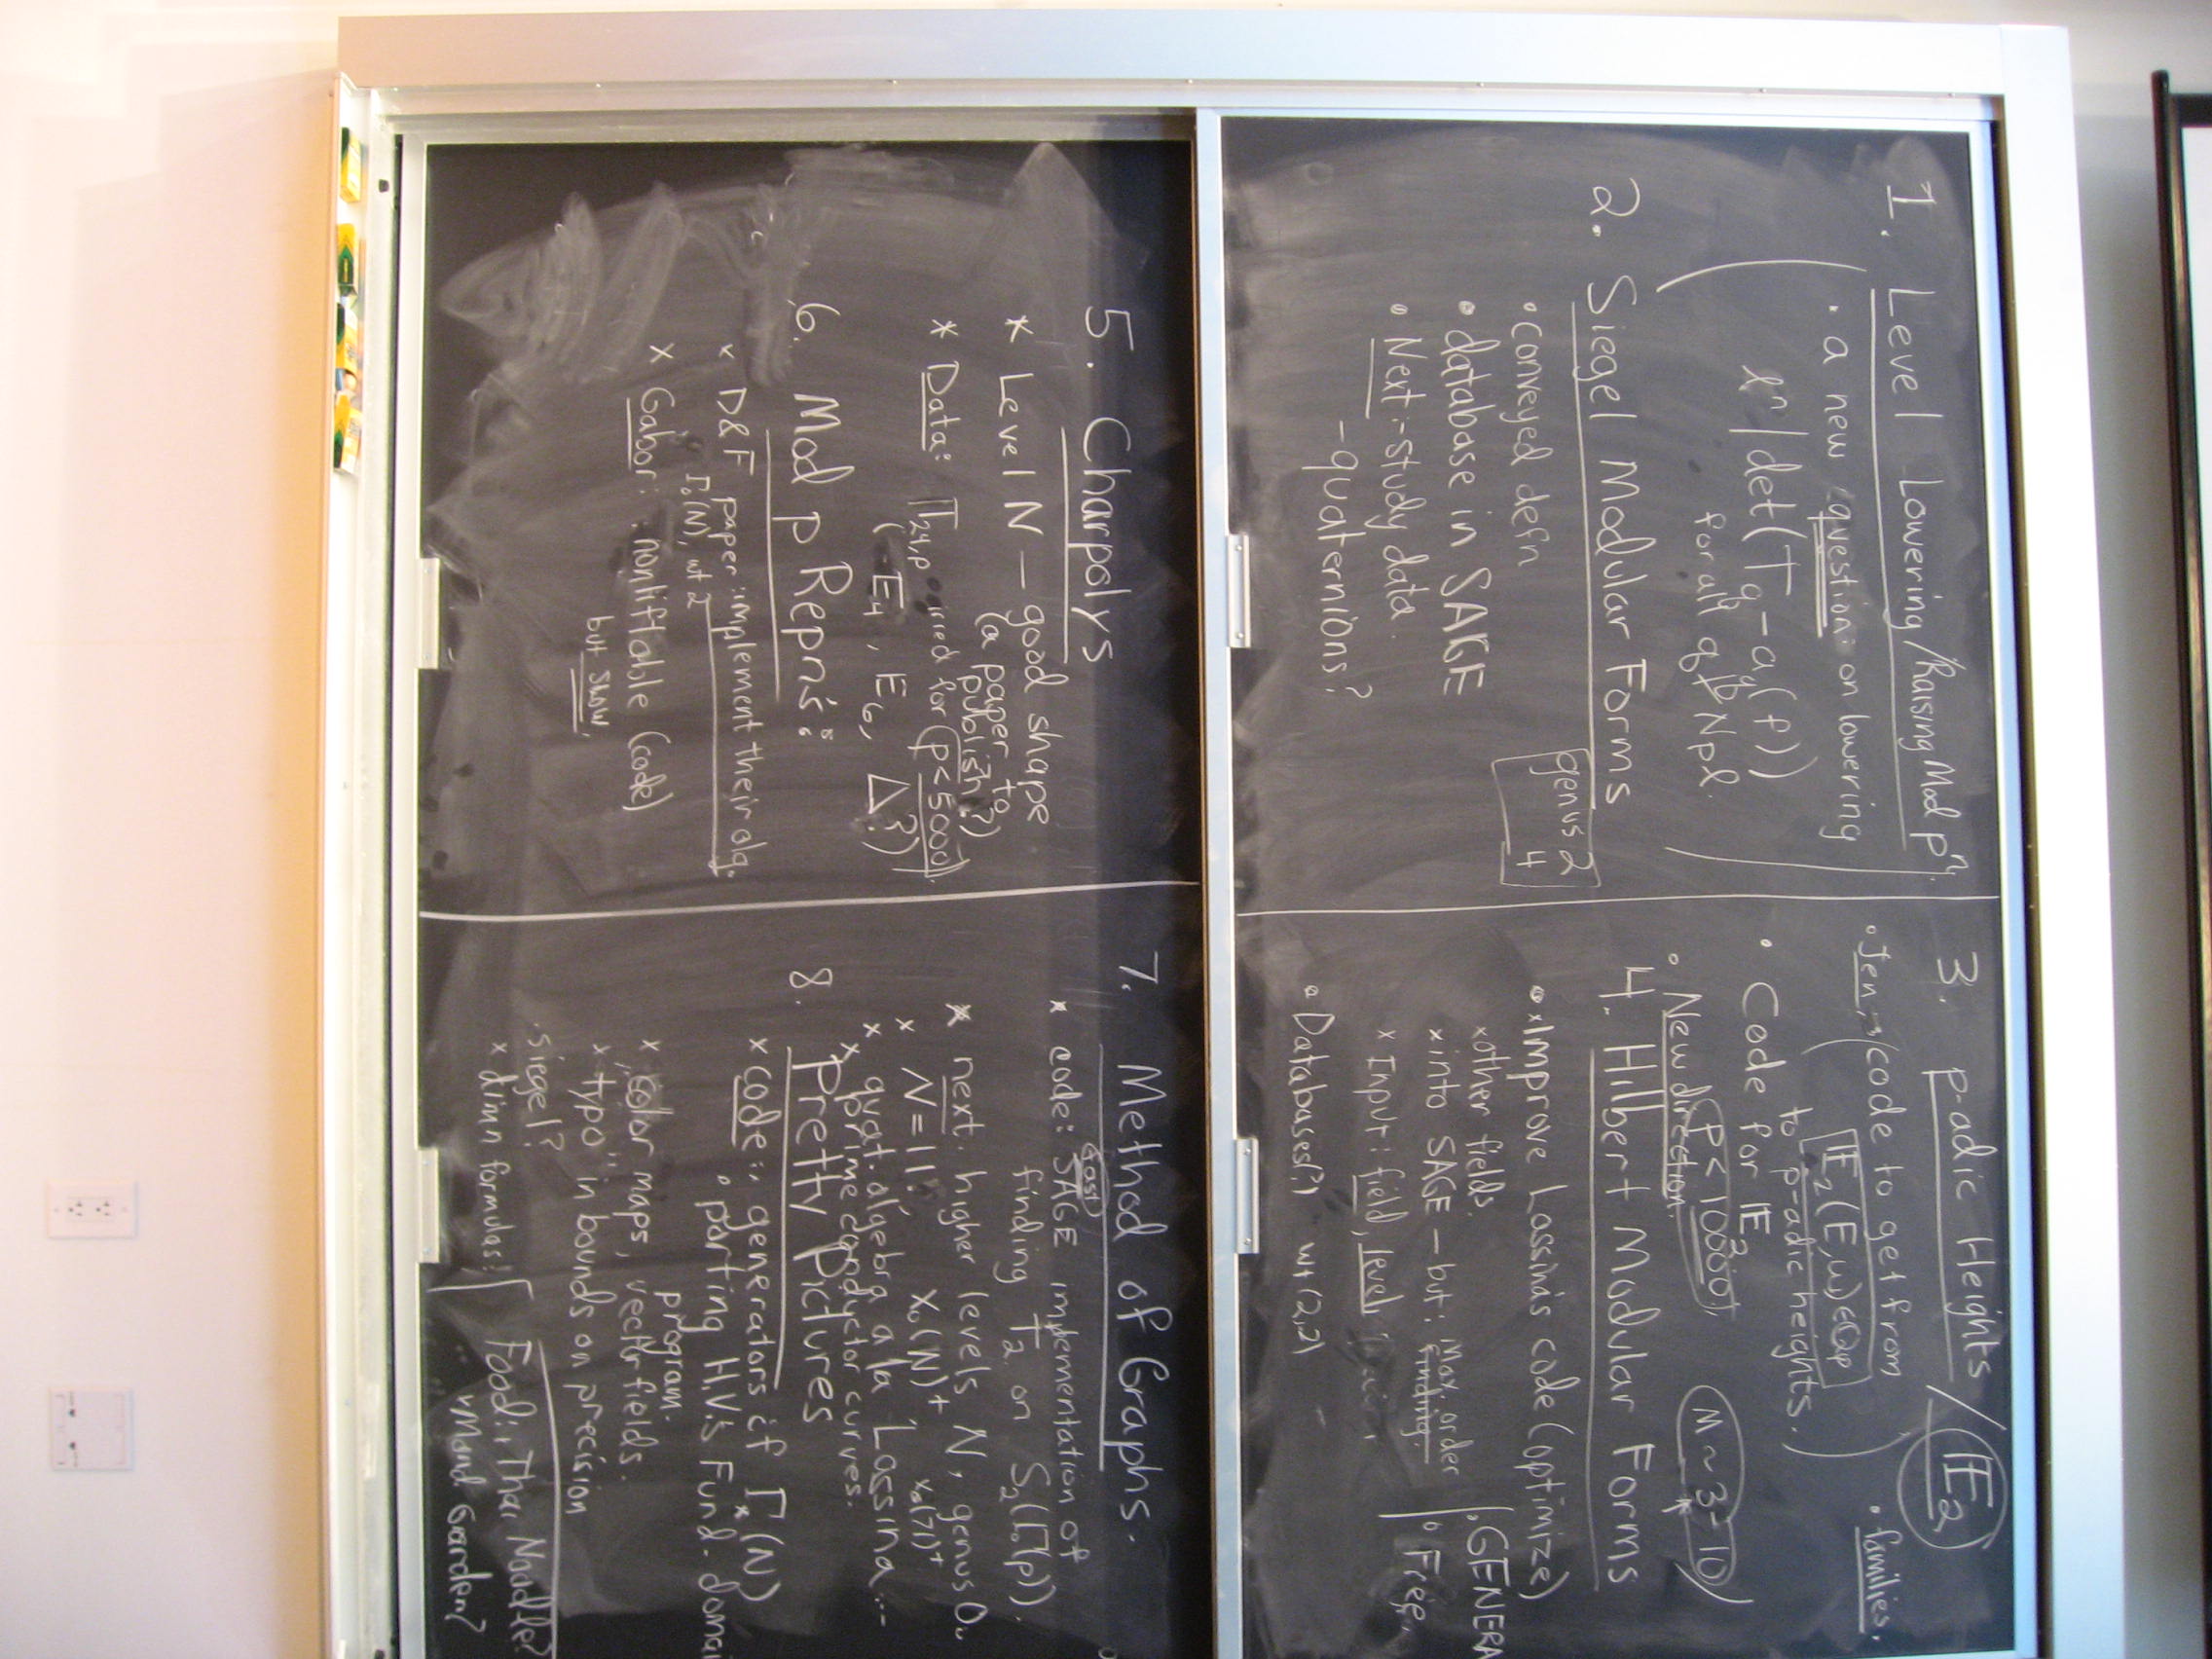 1. Level Lowering/Raising Mod pⁿ.
• a new question: on lowering
ℓⁿ | det(T_q - a_q(f))
for all q ∤ Npℓ.
2. Siegel Modular Forms
genus 2
4
• conveyed defn
• database in SAGE
• Next: - study data.
- quaternions?
3. p-adic Heights / 𝔼₂
• families.
• Jen → (code to get from
𝔼₂(E,ω) ∈ Qp
to p-adic heights.)
• Code for 𝔼₂
(p < 10000,
M ~ 3-10)
• New direction.
4. Hilbert Modular Forms
• × Improve Lassina's code (optimize)
× other fields.
× into SAGE - but: Max. order finding.
× Input: field, level
• GENERA
• Free,
• Databases(?) wt (2,2)
5. Charpolys
* Level N - good shape
(a paper to
publish?)
* Data: T_{24,p} irred for (p < 5000).
(E₄, E₆, Δ?)
6. Mod p Repn's:
× D&F paper: implement their alg.
Γ₀(N), wt 2
× Gabor: nonliftable (code)
but slow.
7. Method of Graphs.
* code: (fast) SAGE implementation of
finding T₂ on S₂(Γ₀(p)).
* next: higher levels N, genus 0.
× N = 11: X₀(N)+ X₀(71)+
× quat. algebra a la Lassina...
× prime conductor curves.
8. Pretty Pictures
× code: • generators if Γ*(N)
• porting H.V.'s Fund. domai
program.
× color maps, vector fields.
× "typo" in bounds on precision
• Siegel?
× dimn formulas!
Food: Thai Noodle?
Mond Garden?